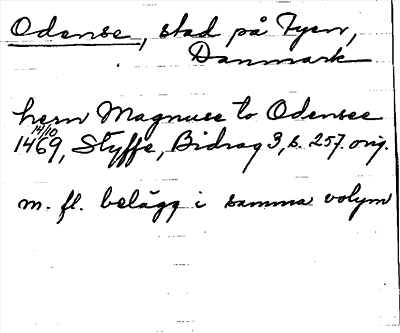 Odense, stad på Fyen,
Danmark
hern Magnuse to Odensee
14/10
1469, Styffe, Bidrag 3, s. 257. orig.
m. fl. belägg i samma volym